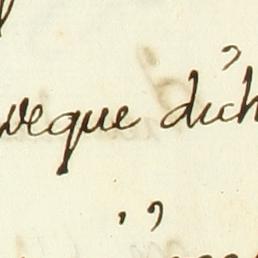 veque dich